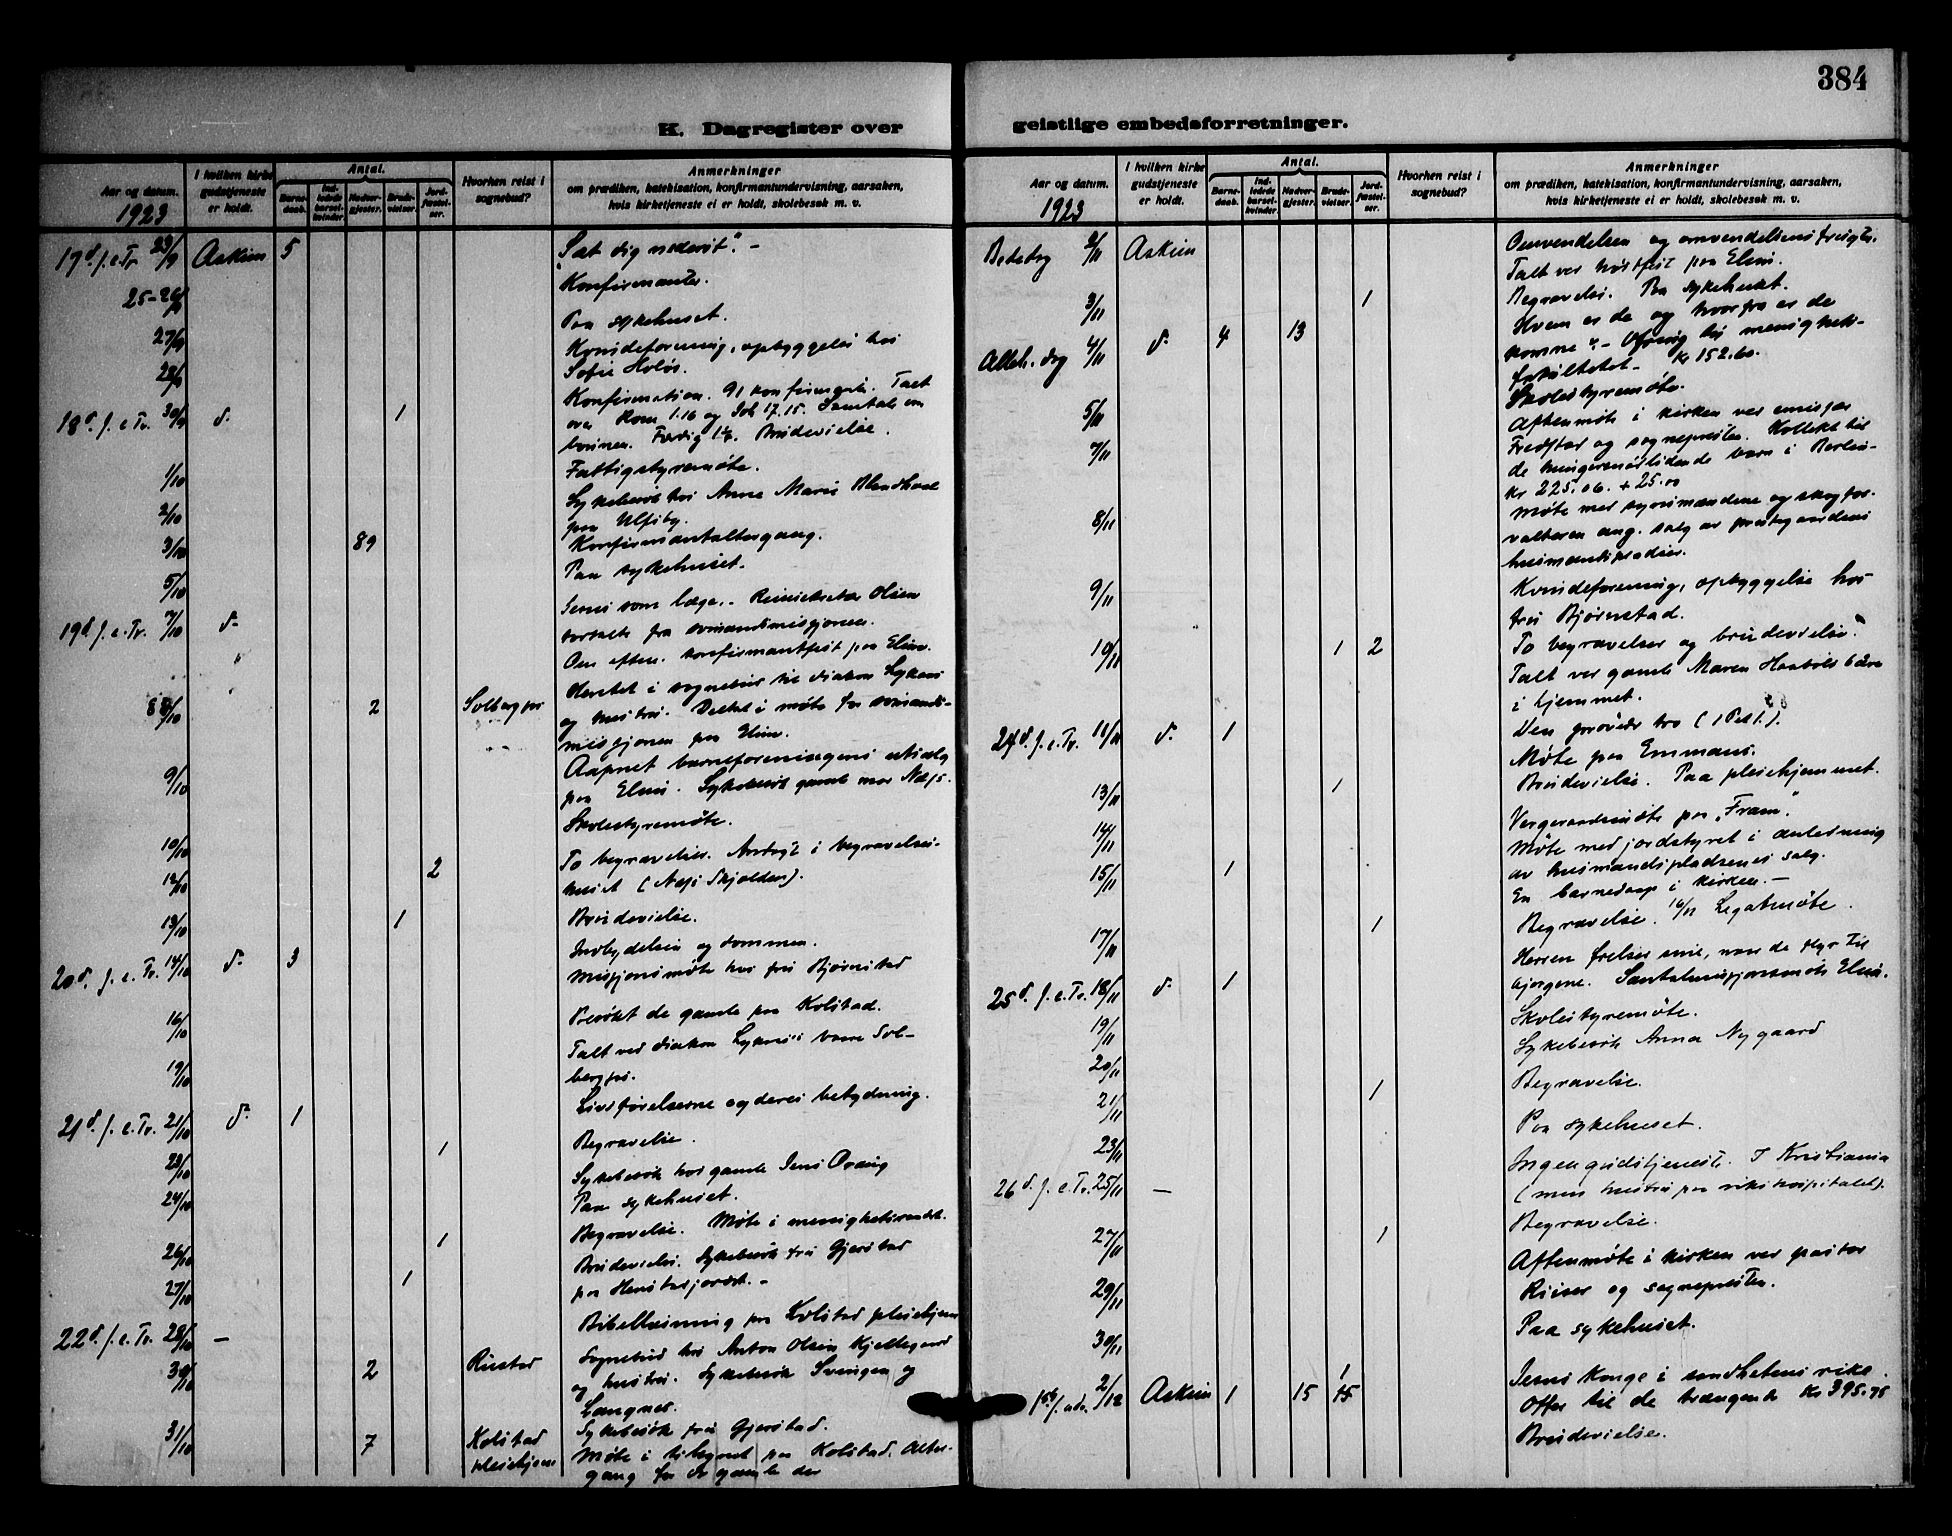 384
K. Dagregister over
geistlige embedsforretninger.
Aar og datum.
1923
I hvilken kirke gudstjeneste er holdt.
Antal.
Barne-daab.
Ind-ledede barsel-kvinder.
Nadver-gjester.
Brude-vielser.
Jord-fæstel-ser.
Hvorhen reist i sognebud?
Anmerkninger
om prædiken, katekisation, konfirmantundervisning, aarsaken,
hvis kirketjeneste ei er holdt, skolebesøk m. v.
17d. f. e. Tr. 23/9 Askim 5 "Sæt dig nederst". -
25-26/9 Konfirmanter.
27/9 Paa sykehuset.
28/9 Kvindeforening, opbyggelse hos
Sofie Holøs.
18d. f. e. Tr. 30/9 d. 1 Konfirmation. 91 konfirmanter. Talt
over Rom 1.16 og Joh 17.15. Samtale om
Færdig Brudevielse.
1/10 Fattigstyremøte.
2/10 Sykebesøk hos Anne Marie
paa Ulfsby.
3/10 89 Konfirmantaltergang.
5/10 Paa sykehuset.
19d f. e. Tr. 7/10 d. Jesus som læge. - Olsen
fortalte fra sømandsmisjonen.
Om eftm. konfirmantfest paa Elim.
8/10 2 Solberg Berettet i sognebud til diakon
og hustru. Deltat i møte for sømands-
misjonen paa Elim.
9/10 Aapnet barneforeningens utsalg
paa Elim. Sykebesøk gamle mor Næs.
10/10 Skolestyremøte.
12/10 2 To begravelser. Andagt i begravelses-
huset (Næs, Skjolden).
13/10 1 Brudevielse.
20d. f. e. Tr. 14/10 d. 3 Indbydelsen og dommen.
Misjonsmøte hos fru Bjørnstad
16/10 Besøkt de gamle paa Kolstad.
19/10 Talt ved diakon baare Sol-
21d. f. e. Tr. 21/10 d. 1 Livsførelserne og deres betydning.
23/10 1 Begravelse.
24/10 Sykebesøk hos gamle Jens
Paa sykehuset.
26/10 1 Begravelse. Møte i menighetsraadet.
27/10 1 Brudevielse. Sykebesøk fru Gjerstad
paa
22d. f. e. Tr. 28/10 - Bibellæsning paa Kolstad pleiehjem
30/10 2 Riistad Sognebud hos Anton Olsen
og hustru. Sykebesøk Svingen og
Langnes.
31/10 7 Kolstad
pleiehjem Sykebesøk fru Gjerstad.
Møte i tilsynet paa Kolstad. Alter-
gang for de gamle der
Aar og datum.
1923
I hvilken kirke gudstjeneste er holdt.
Antal.
Barne-daab.
Ind-ledede barsel-kvinder.
Nadver-gjester.
Brude-vielser.
Jord-fæstel-ser.
Hvorhen reist i sognebud?
Anmerkninger
om prædiken, katekisation, konfirmantundervisning, aarsaken,
hvis kirketjeneste ei er holdt, skolebesøk m. v.
Botsdag 2/11 Askim Omvendelsen og omvendelsens frugter.
Talt ved høstfest paa Elim.
3/11 1 Begravelse. Paa sykehuset.
Alleh. dag 4/11 d. 4 13 Hvem er de og hvorfra er de
komne". - Ofring til menighets-
fakultetet - Kr 152.60.
5/11 Skolestyremøte.
7/11 Aftenmøte i kirken ved emissær
Fredstad og sognepresten. Kollekt til
de hungersnødlidende barn i Berlin -
kr 225.06. + 25.00
8/11 Møte med syvsmændene og skogfor-
valteren ang. salg av prestegaardens
husmandspladser.
9/11 Kvindeforening, opbyggelse hos
fru Bjørnstad.
10/11 1 2 To begravelser og brudevielse.
Talt ved gamle Maren baare
i hjemmet.
24d. f. e. Tr. 11/11 d. 1 Den prøvede tro (1 Pet 1.).
Møte paa Emmaus.
13/11 1 Brudevielse. Paa pleiehjemmet.
14/11 Vergeraadsmøte paa "Fram".
15/11 1 Møte med jordstyret i anledning
av husmandspladsenes salg.
En barnedaap i kirken. -
17/11 1 Begravelse. 16/11 Legatmøte.
25d. f. e. Tr. 18/11 d. 1 Herren frelser sine, naar de flyr til
bjergene. Santalmisjonsmøte Elim.
19/11 Skolestyremøte.
20/11 Sykebesøk Anna Nygaard
21/11 1 Begravelse.
23/11 Paa sykehuset.
26d. f. e. Tr. 25/11 - Ingen gudstjeneste. I Kristiania
(min hustru paa rikshospitalet).
27/11 1 Begravelse.
29/11 Aftenmøte i kirken ved pastor
Riiser og sognepresten.
30/11 Paa sykehuset.
1st. s. adv. 2/12 Askim 1 15 1 Jesus Konge i sandhetens rike.
Offer til de trængende Kr 395.75
Brudevielse.